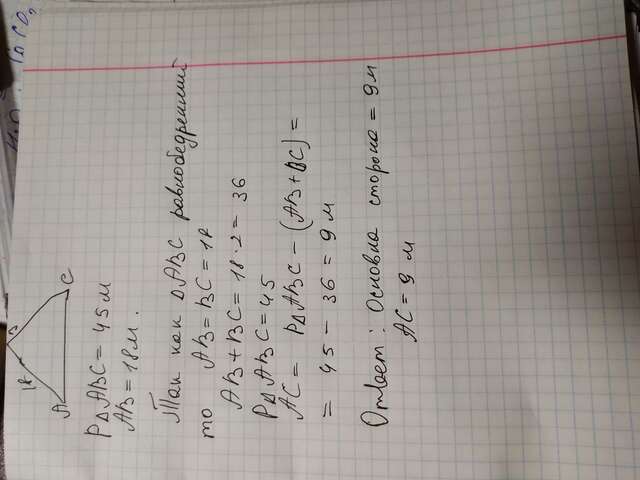 B
18
A
C
P△ABC = 45 м
AB = 18 м.
Так как △ABC равнобедренний
то AB = BC = 18
AB + BC = 18 · 2 = 36
P△ABC = 45
AC = P△ABC - (AB + BC) =
= 45 - 36 = 9 м
Ответ: Основна сторона = 9 м
AC = 9 м